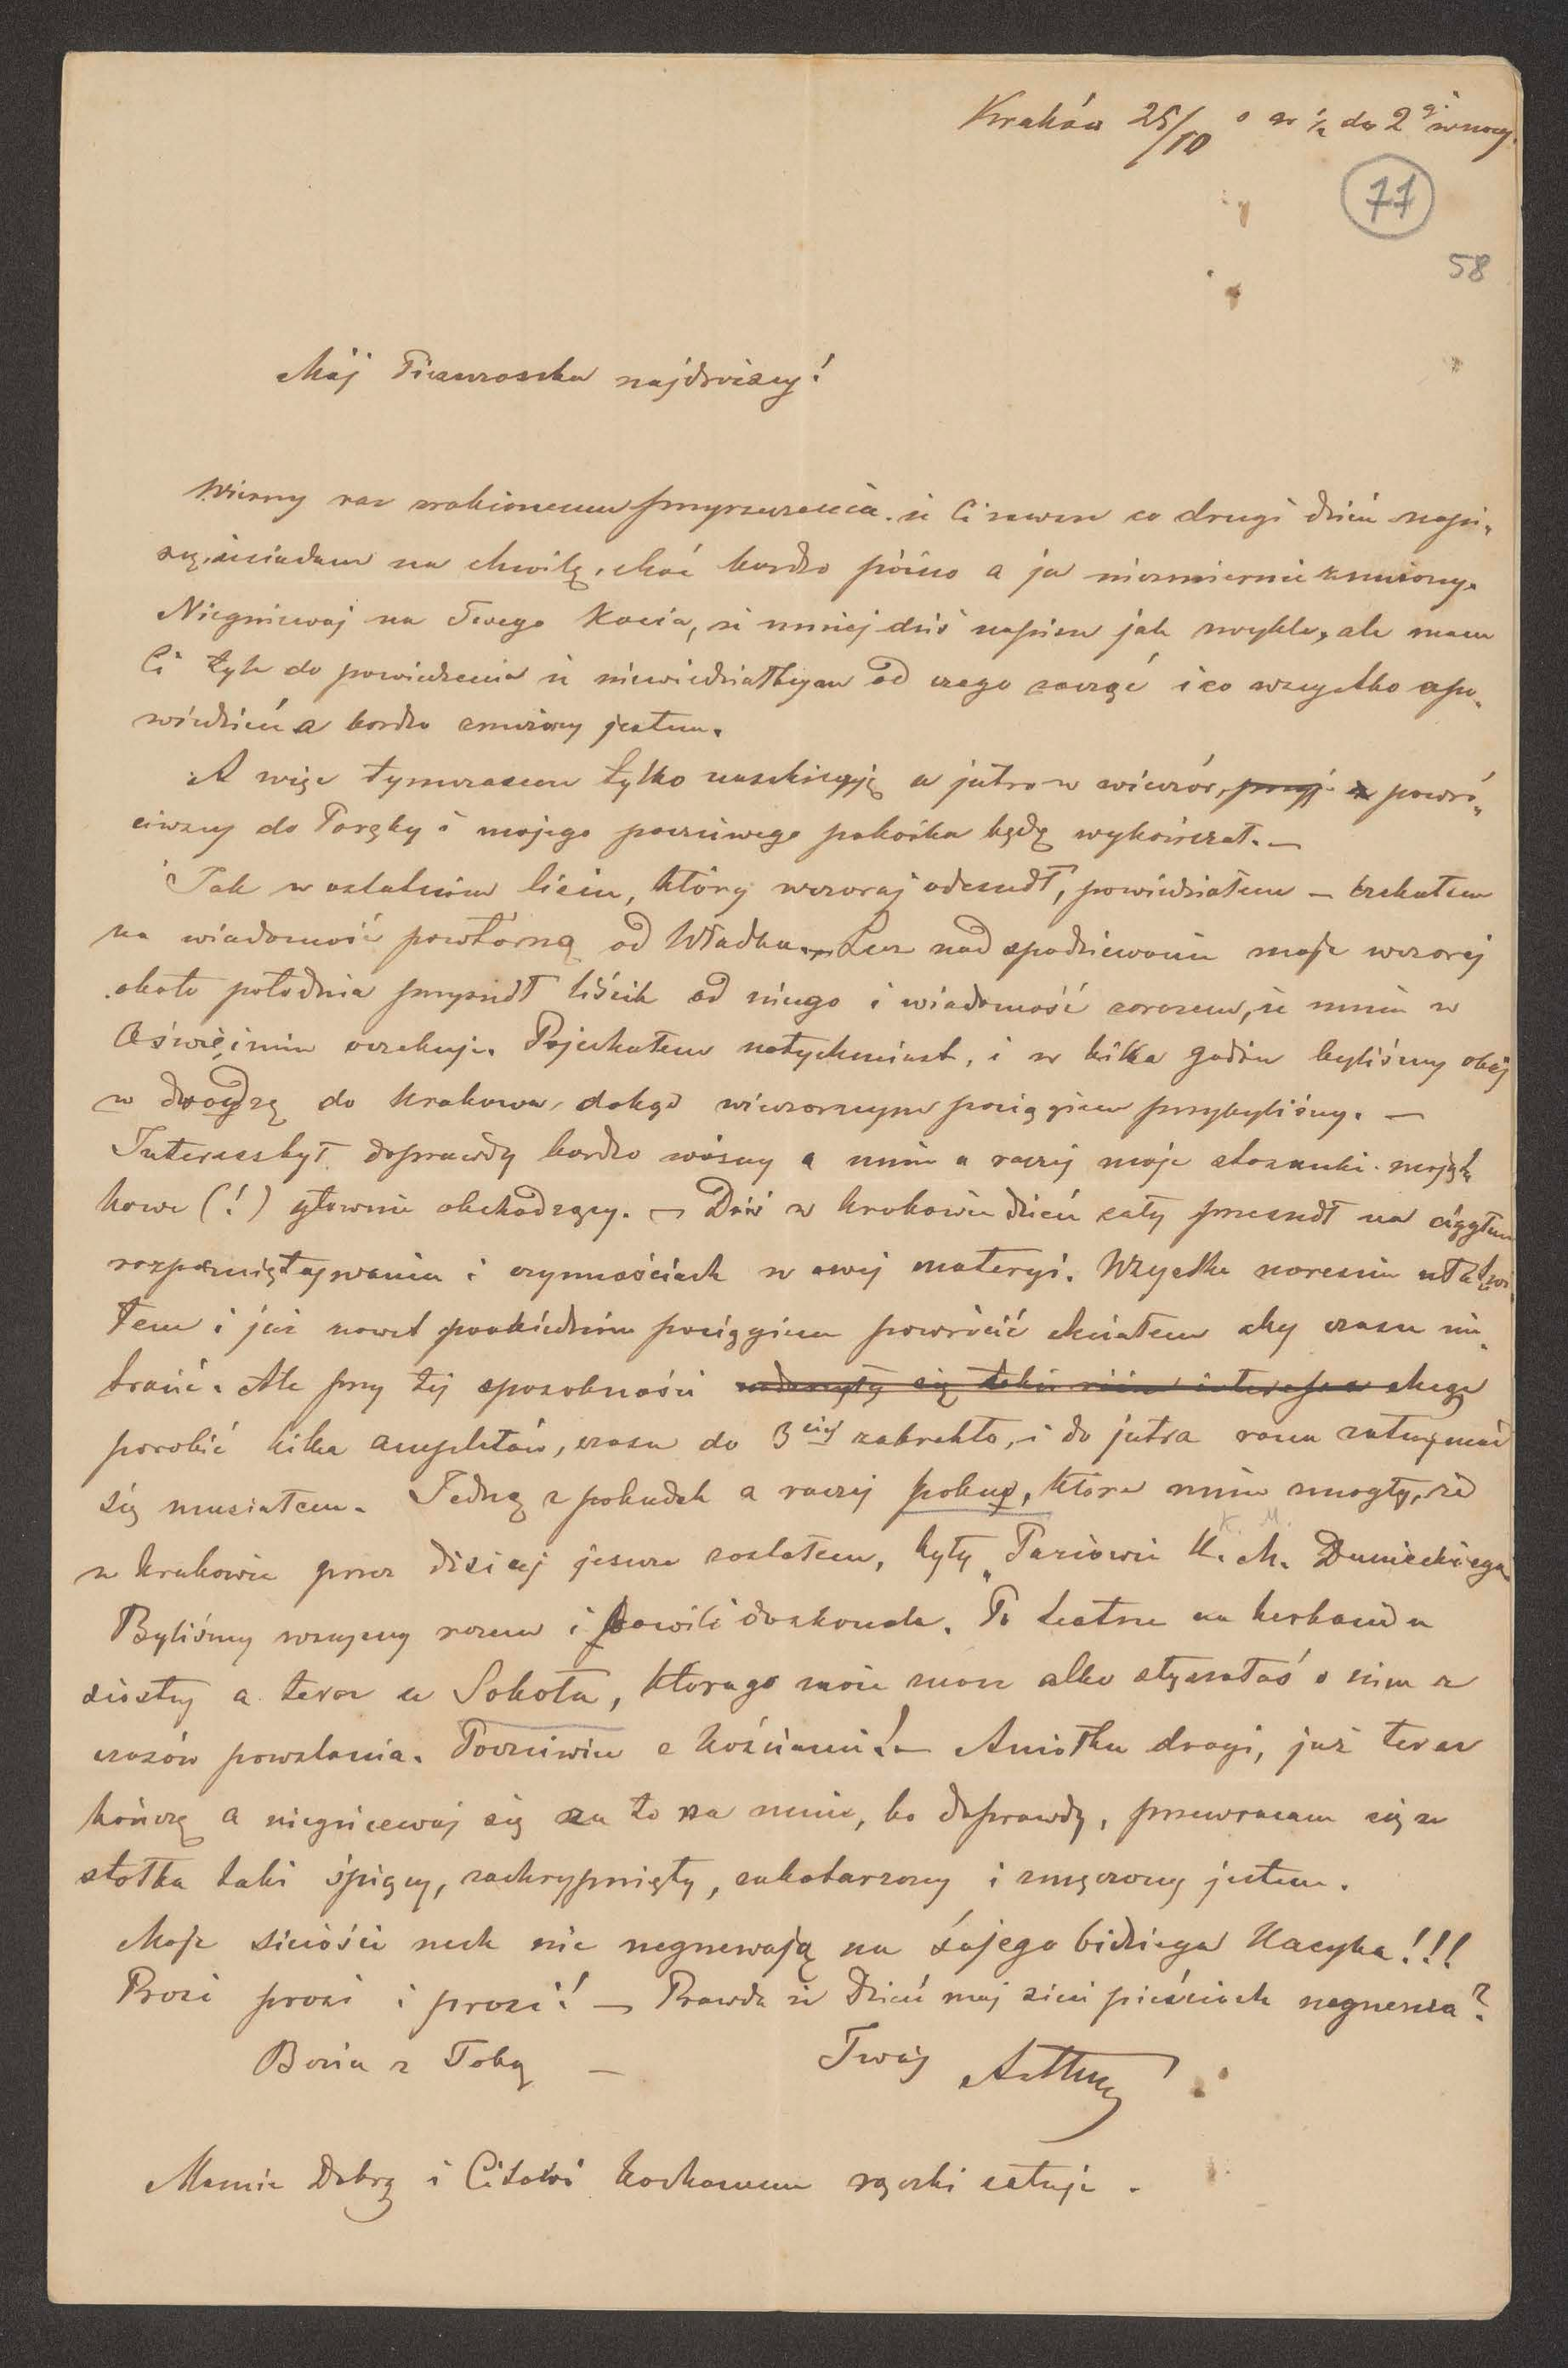 Kraków 25/10 o w ½ do 2giej w nocy.
77
58
Mój Pieszczoszku najdroższy!
Wierny raz zrobionemu przyrzeczeniu, że Ci zawsze co drugi dzień napi„
szę, usiadam na chwilę, choć bardzo późno a ja niezmiernie znużony.
Niegniewaj na Twego Kocia, że mniej dziś napiszę jak zwykle, ale mam
Ci tyle do powiedzenia że niewiedziałbym od czego zacząć i co wszystko opo„
wiedzieć a bardzo znużony jestem.
A więc tymczasem tylko naszkicuję a jutro w wieczór, powró„
ciwszy do Poręby i mojego poczciwego pokoika będę wykończał. —
Jak w ostatnim liście, który wczoraj odszedł, powiedziałem — czekałem
na wiadomość powtórną od Władka. — Lecz nad spodziewanie moje wczoraj
około południa przyszedł liścik od niego i wiadomość zarazem, że mnie w
Oświęcimie oczekuje. Pojechałem natychmiast, i w kilka godzin byliśmy obaj
w drodze do Krakowa, dokąd wieczornym pociągiem przybyliśmy. —
Interes był doprawdy bardzo ważny a mnie a raczej moje stosunki mająt„
kowe (!) głownie obchodzący. — Dziś w Krakowie dzień cały przeszedł na ciągłem
rozpamiętywaniu i czynnościach w owej materyi. Wszystko nareszcie ułatwi„
łem i już nawet poobiednim pociągiem powrócić chciałem aby czasu nie„
tracić. Ale przy tej sposobności chcąc
porobić kilka sprawunków, czasu do 3ciej zabrakło, i do jutra rana zatrzymać
się musiałem. Jedną z pobudek a raczej pokus, które mnie zmogły, że
w Krakowie przez dzisiaj jeszcze zostałem, były „Paziowie K. M. Dunieckiego
Byliśmy wszyscy razem i bawili doskonale. Po teatrze na herbacie u
siostry a teraz u Sokoła, którego może znasz albo słyszałaś o nim z
czasów powstania. Poczciwiec z kościami! — Aniołku drogi, już teraz
kończę a niegniewaj się za to na mnie, bo doprawdy, przewracam się z
stołka taki śpiący, zachrypnięty, zakatarzony i zmęczony jestem.
Moje siciości nech nie negnewają na śojego bidiego Kacyka!!!
Prosi prosi i prosi! — Prawda że Dzieć moj sici pieścioch negnewa?
Bozia z Tobą — Twój Artur
Mamie Dobrą i Citowi kochanemu rączki całuję.